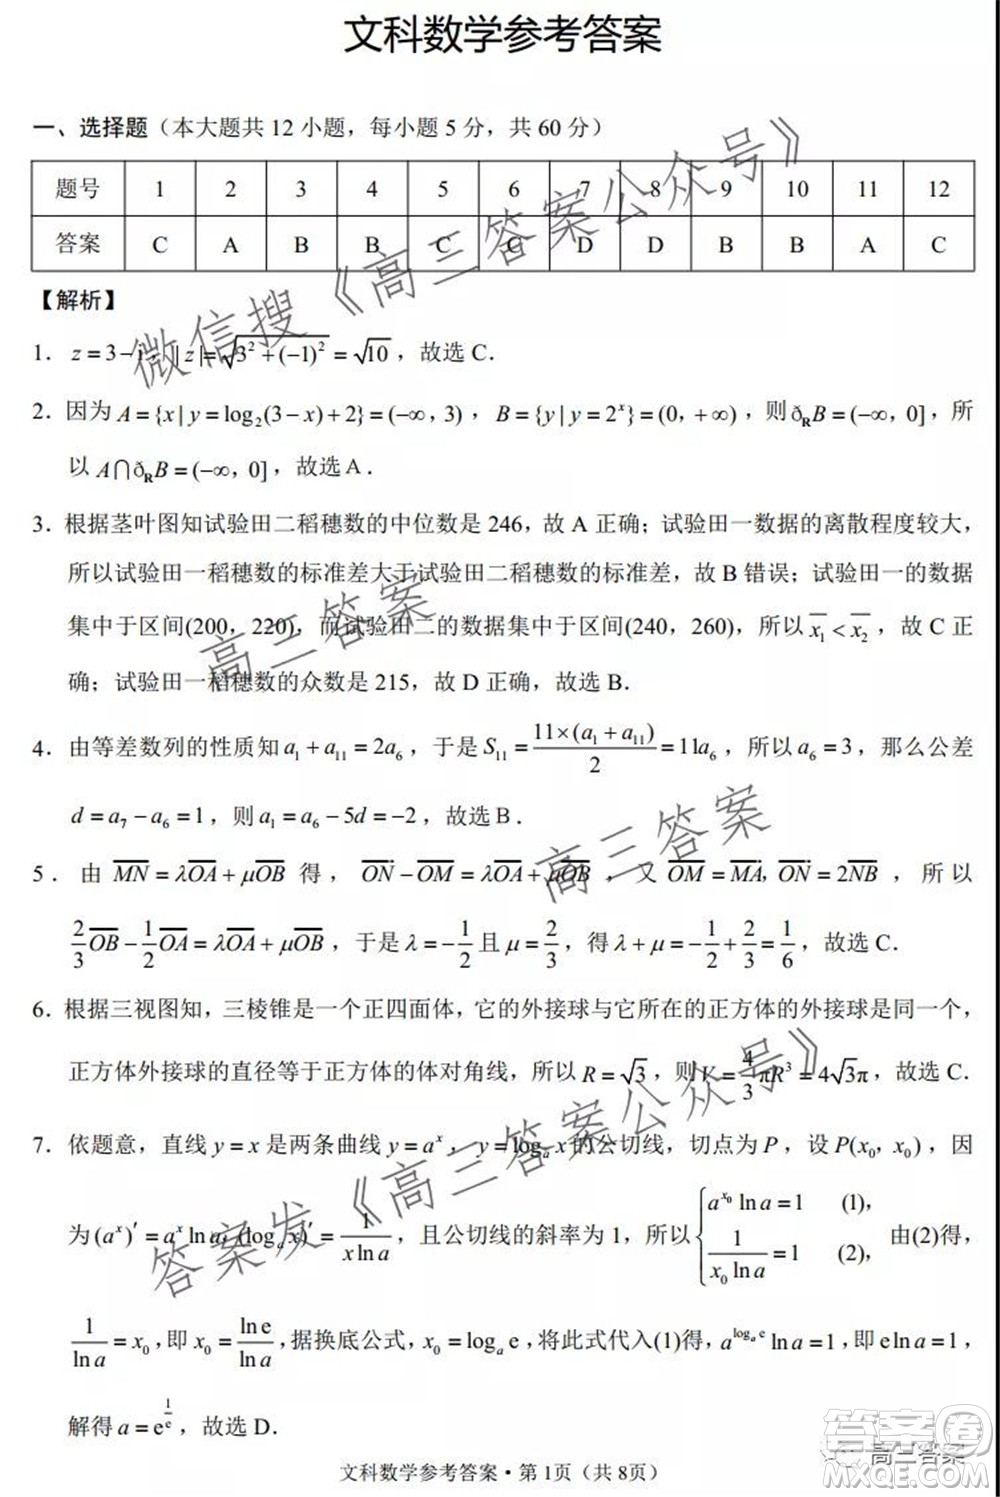 文科数学参考答案
一、选择题（本大题共 12 小题，每小题 5 分，共 60 分）
题号 1 2 3 4 5 6 7 8 9 10 11 12
答案 C A B B C C D D B B A C
【解析】
1．z=3-i，|z|=√(3²+(-1)²)=√10，故选 C．
2．因为 A={x|y=log₂(3-x)+2}=(-∞，3)，B={y|y=2ˣ}=(0，+∞)，则ð_R B=(-∞，0]，所
以 A∩ð_R B=(-∞，0]，故选 A．
3．根据茎叶图知试验田二稻穗数的中位数是 246，故 A 正确；试验田一数据的离散程度较大，
所以试验田一稻穗数的标准差大于试验田二稻穗数的标准差，故 B 错误；试验田一的数据
集中于区间(200，220)，而试验田二的数据集中于区间(240，260)，所以 x̄₁<x̄₂，故 C 正
确；试验田一稻穗数的众数是 215，故 D 正确，故选 B．
4．由等差数列的性质知 a₁+a₁₁=2a₆，于是 S₁₁=11×(a₁+a₁₁)/2=11a₆，所以 a₆=3，那么公差
d=a₇-a₆=1，则 a₁=a₆-5d=-2，故选 B．
5．由 MN=λOA+μOB 得，ON-OM=λOA+μOB，又 OM=MA，ON=2NB，所以
2/3 OB-1/2 OA=λOA+μOB，于是 λ=-1/2 且 μ=2/3，得 λ+μ=-1/2+2/3=1/6，故选 C．
6．根据三视图知，三棱锥是一个正四面体，它的外接球与它所在的正方体的外接球是同一个，
正方体外接球的直径等于正方体的体对角线，所以 R=√3，则 V=4/3 πR³=4√3π，故选 C．
7．依题意，直线 y=x 是两条曲线 y=aˣ，y=logₐx 的公切线，切点为 P，设 P(x₀，x₀)，因
为 (aˣ)′=aˣ ln a，(logₐx)′=1/(x ln a)，且公切线的斜率为 1，所以 { a^(x₀) ln a=1 (1)， 1/(x₀ ln a)=1 (2)， 由(2)得，
1/ln a=x₀，即 x₀=ln e/ln a，据换底公式，x₀=logₐe，将此式代入(1)得，a^(logₐe) ln a=1，即 e ln a=1，
解得 a=e^(1/e)，故选 D．
文科数学参考答案·第 1页（共 8页）
微信搜《高三答案公众号》
高三答案
高三答案
答案发《高三答案公众号》
高三答案
答案卷
MXQE.COM